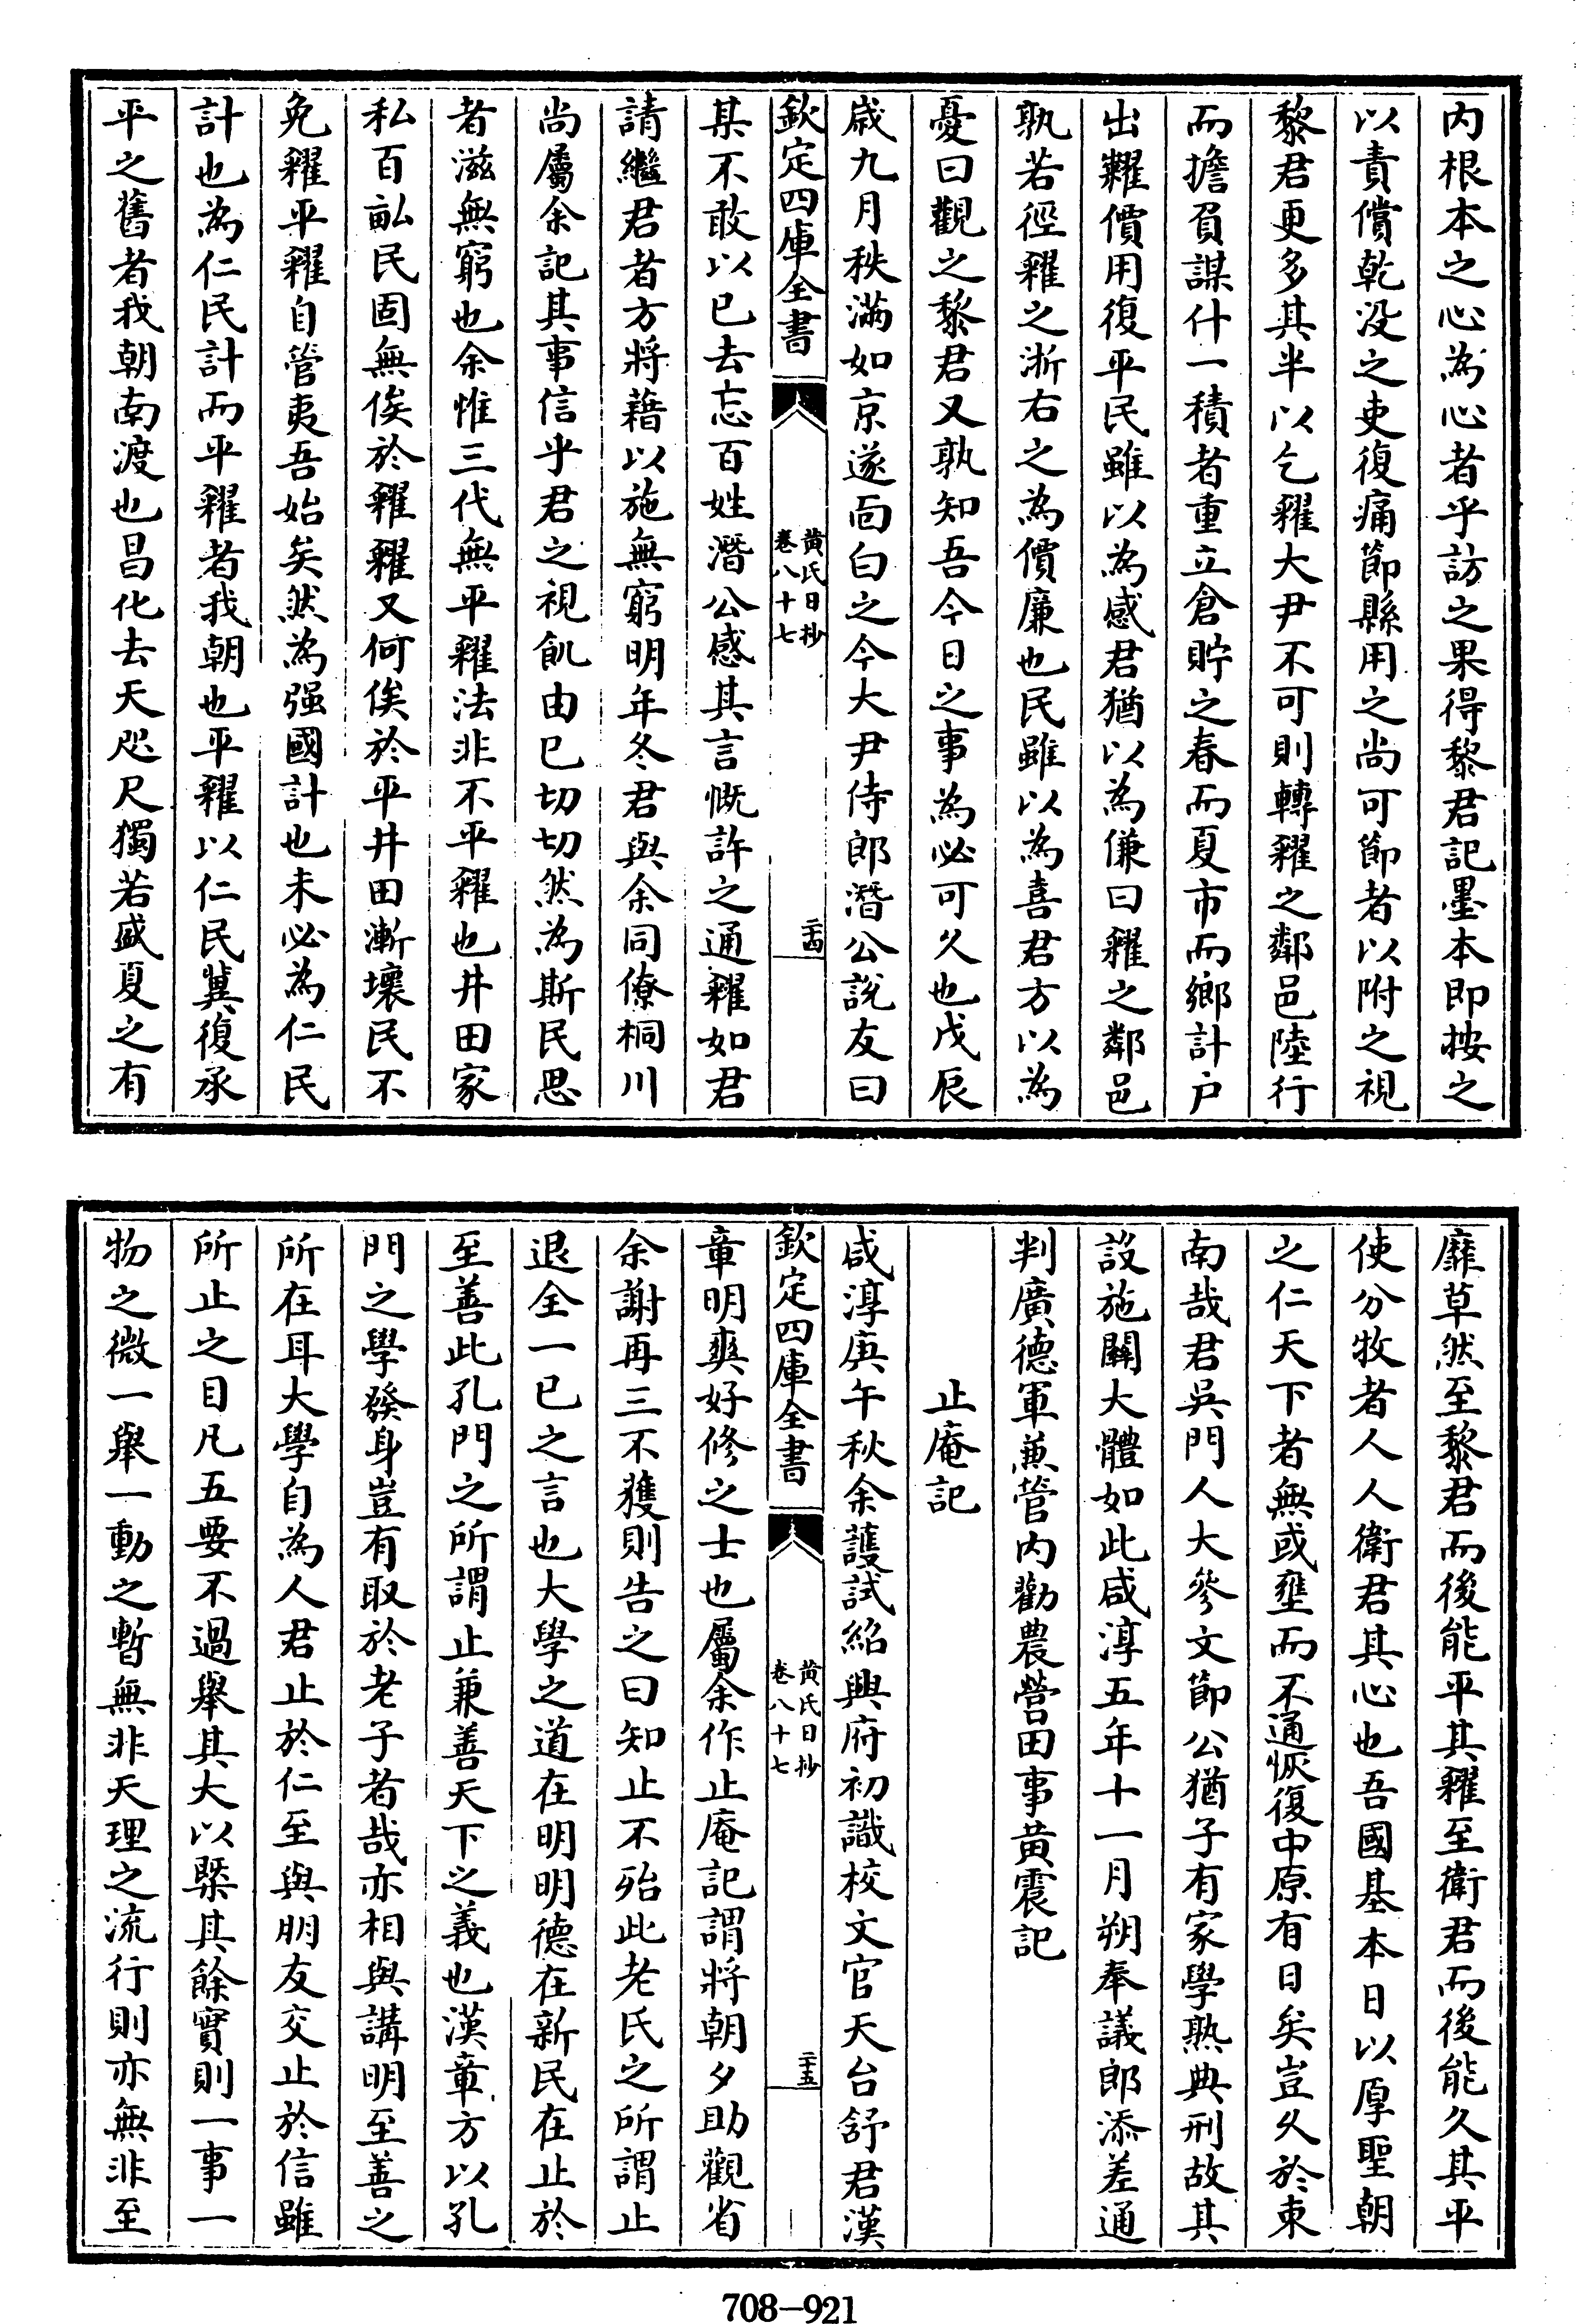 内根本之心為心者乎訪之果得黎君記墨本即按之
以責償乾没之吏復痛節縣用之尚可節者以附之視
黎君更多其半以乞糴大尹不可則轉糴之鄰邑陸行
而擔負謀什一積者重立倉貯之春而夏市而鄉計户
出糶價用復平民雖以為感君猶以為傔曰糴之鄰邑
孰若徑糴之浙右之為價廉也民雖以為喜君方以為
憂曰觀之黎君又孰知吾今日之事為必可久也戊辰
歳九月秩滿如京遂面白之今大尹侍郎潛公說友曰
欽定四庫全書
黄氏日抄
卷八十七
二十四
某不敢以已去忘百姓潛公感其言慨許之通糴如君
請繼君者方將藉以施無窮明年冬君與余同僚桐川
尚屬余記其事信乎君之視飢由已切切然為斯民思
者滋無窮也余惟三代無平糴法非不平糴也井田家
私百畝民固無俟於糴糶又何俟於平井田漸壞民不
免糴平糴自管夷吾始矣然為强國計也未必為仁民
計也為仁民計而平糴者我朝也平糴以仁民冀復承
平之舊者我朝南渡也昌化去天咫尺獨若盛夏之有
靡草然至黎君而後能平其糴至衛君而後能久其平
使分牧者人人衛君其心也吾國基本日以厚聖朝
之仁天下者無或壅而不通恢復中原有日矣豈久於東
南哉君吳門人大參文節公猶子有家學熟典刑故其
設施關大體如此咸淳五年十一月朔奉議郎添差通
判廣德軍兼管内勸農營田事黄震記
止庵記
咸淳庚午秋余護試紹興府初識校文官天台舒君漢
欽定四庫全書
黄氏日抄
卷八十七
二十五
章明爽好修之士也屬余作止庵記謂將朝夕助觀省
余謝再三不獲則告之曰知止不殆此老氏之所謂止
退全一已之言也大學之道在明明德在新民在止於
至善此孔門之所謂止兼善天下之義也漢章方以孔
門之學發身豈有取於老子者哉亦相與講明至善之
所在耳大學自為人君止於仁至與朋友交止於信雖
所止之目凡五要不過舉其大以槩其餘實則一事一
物之微一舉一動之暫無非天理之流行則亦無非至
708-921